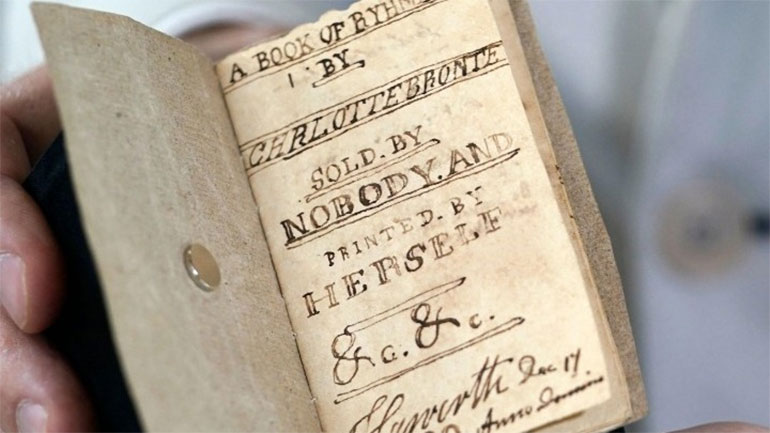 A BOOK OF RYHM
BY
CHRLOTTE BRONTE
SOLD. BY
NOBODY. AND
PRINTED. BY
HERSELF
&c. &c.
Haworth Dec 17
Anno domino